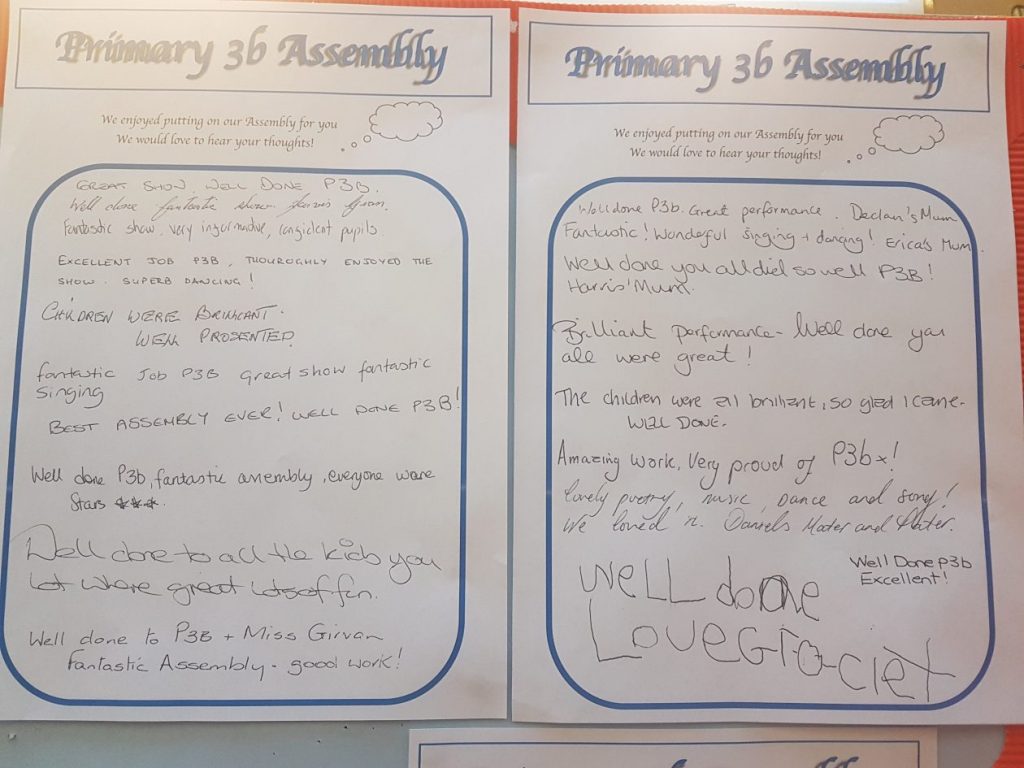 Primary 3b Assembly
We enjoyed putting on our Assembly for you
We would love to hear your thoughts!
GREAT SHOW. WELL DONE P3B.
Well done fantastic show. Gran.
Fantastic show, very informative, confident pupils
EXCELLENT JOB P3B, THOUROGHLY ENJOYED THE
SHOW. SUPERB DANCING!
CHILDREN WERE BRILLIANT.
WELL PROSENTED.
fantastic Job P3B great show fantastic
singing
BEST ASSEMBLY EVER! WELL DONE P3B!
Well done P3b, fantastic assembly, everyone were
Stars ***.
Well done to all the kids you
lot where great lots of fun.
Well done to P3B + Miss Girvan
Fantastic Assembly - good work!
Primary 3b Assembly
We enjoyed putting on our Assembly for you
We would love to hear your thoughts!
Well done P3b. Great performance. Declan's Mum
Fantastic! Wonderful singing + dancing! Erica's Mum.
Well done you all did so well P3B!
Harris' Mum.
Brilliant performance - Well done you
all were great!
The children were all brilliant, so glad I came.
WELL DONE.
Amazing work, Very proud of P3b x!
Lovely poetry, music, dance and song!
We loved it. Daniels Mater and Pater.
Well Done P3b
Excellent!
well done
Love